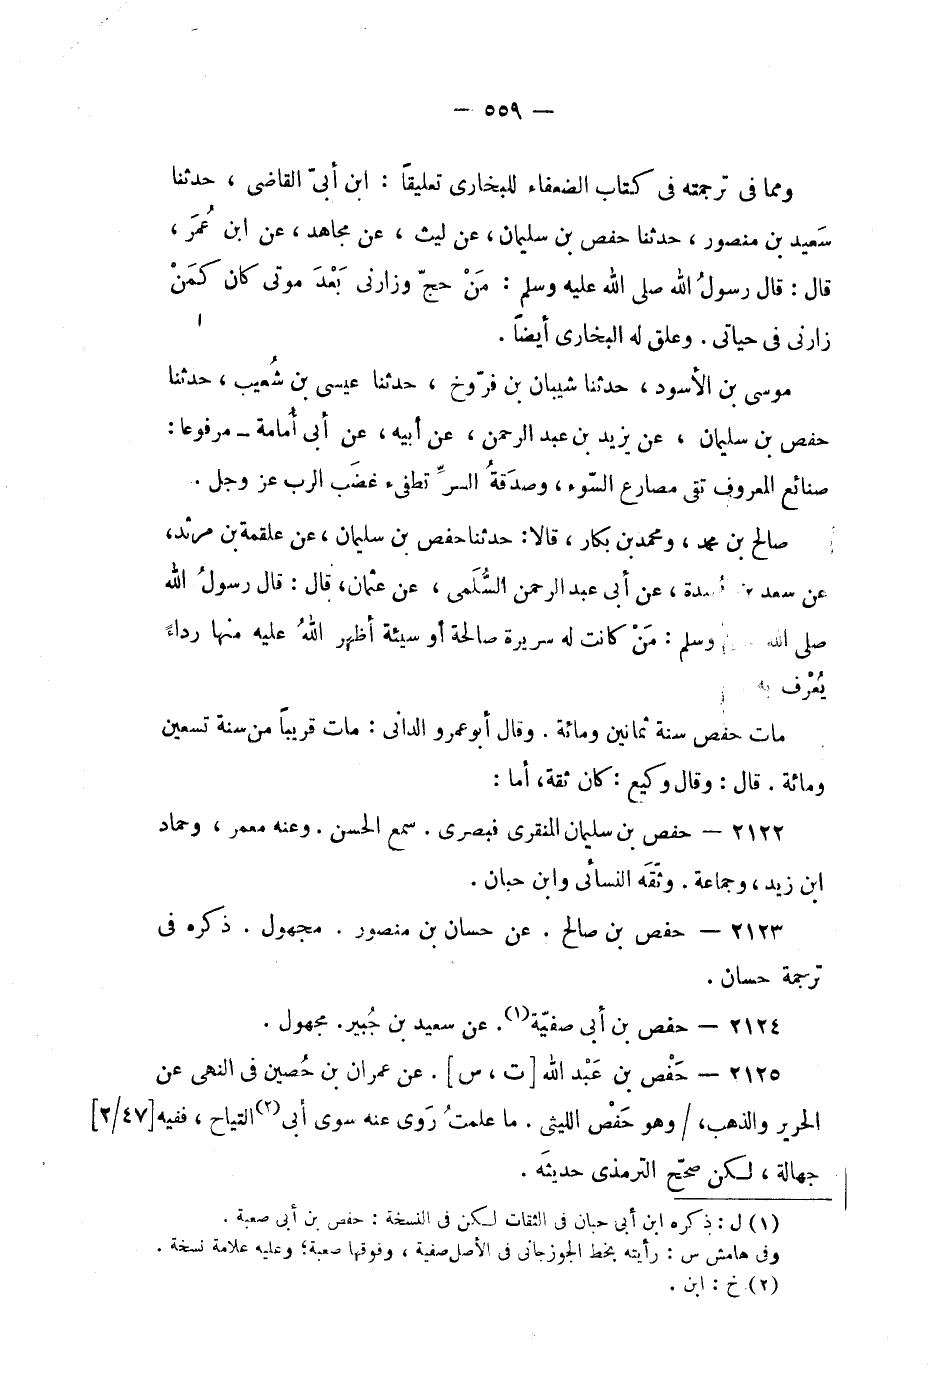 — ٥٥٩ —
ومما فى ترجمته فى كتاب الضعفاء للبخارى تعليقاً : ابن أبىّ القاضى ، حدثنا
سَعيد بن منصور ، حدثنا حفص بن سليمان ، عن ليث ، عن مجاهد ، عن ابن عُمَر ،
قال : قال رسولُ الله صلى الله عليه وسلم : مَنْ حجّ وزارنى بَعْدَ موتى كان كمَنْ
زارنى فى حياتى . وعلق له البخارى أيضاً .
موسى بن الأسود ، حدثنا شيبان بن فرّوخ ، حدثنا عيسى بن شُعيب ، حدثنا
حفص بن سليمان ، عن يزيد بن عبد الرحمن ، عن أبيه ، عن أبى أُمامة ــ مرفوعا :
صنائع المعروف تقى مصارع السّوء ، وصدَقةُ السرِّ تطفىء غضَب الرب عز وجل .
صالح بن محمد ، ومحمد بن بكار ، قالا : حدثنا حفص بن سليمان ، عن علقمة بن مرثد ،
عن سعد بن عُبيدة ، عن أبى عبد الرحمن السُّلَمى ، عن عثمان ، قال : قال رسولُ الله
صلى الله وسلم : مَنْ كانت له سريرة صالحة أو سيئة أظهر اللهُ عليه منها رداءً
يُعْرف به
مات حفص سنة ثمانين ومائة . وقال أبو عمرو الدانى : مات قريباً من سنة تسعين
ومائة . قال : وقال وكيع : كان ثقة ، أما :
٢١٢٢ — حفص بن سليمان المنقرى فبصرى . سمع الحسن . وعنه معمر ، وحماد
ابن زيد ، وجماعة . وثّقَه النسائى وابن حبان .
٢١٢٣ — حفص بن صالح . عن حسان بن منصور . مجهول . ذكره فى
ترجمة حسان .
٢١٢٤ — حفص بن أبى صفيّة(١) . عن سعيد بن جُبير . مجهول .
٢١٢٥ — حَفْص بن عَبْد الله [ ت ، س ] . عن عمران بن حُصين فى النهى عن
الحرير والذهب ، / وهو حَفْص الليثى . ما علمتُ رَوى عنه سوى أبى(٢) التياح ، ففيه [٢/٤٧]
جهالة ، لكن صحّح الترمذى حديثَه .
(١) ل : ذكره ابن أبى حبان فى الثقات لكن فى النسخة : حفص بن أبى صعبة .
وفى هامش س : رأيته بخط الجوزجانى فى الأصل صفية ، وفوقها صعبة؛ وعليه علامة نسخة .
(٢) خ : ابن .